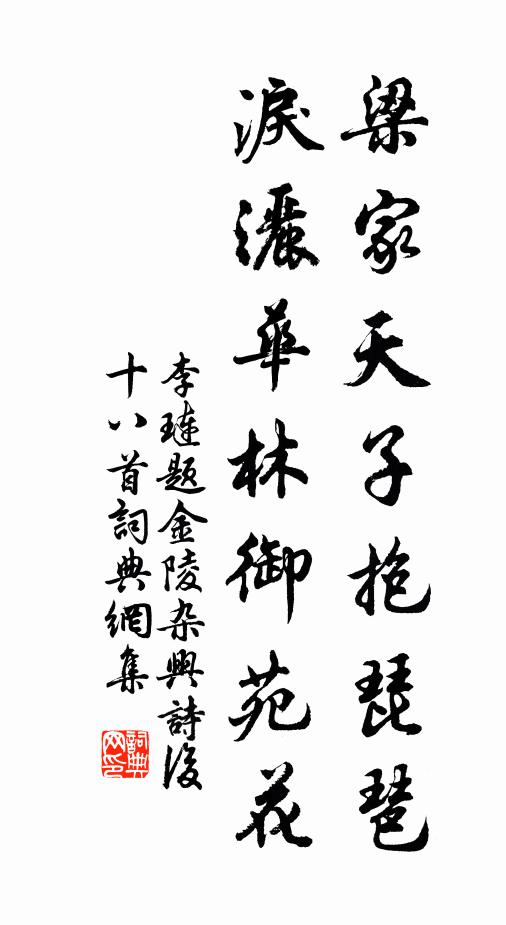 梁家天子抱琵琶
淚灑華林御苑花
李璉題金陵杂興詩後
十八首詞典網集
詞典網印